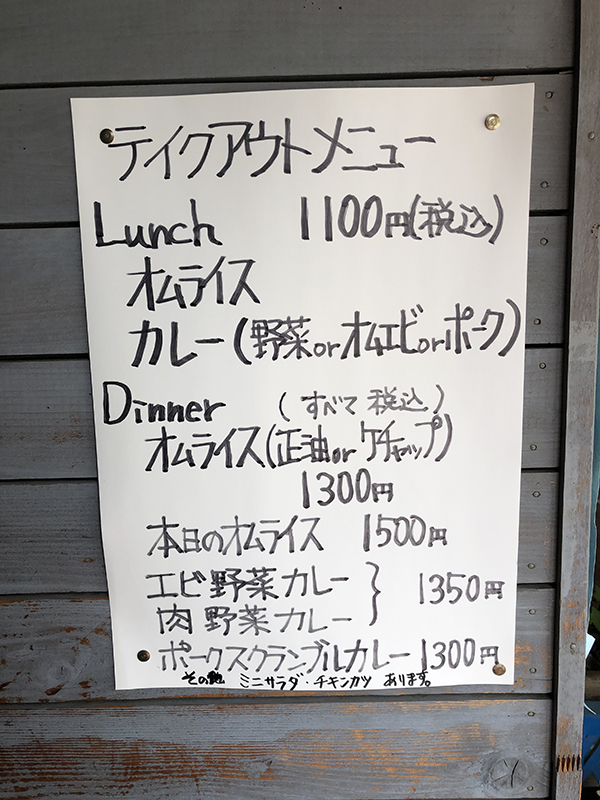 テイクアウトメニュー
Lunch 1100円(税込)
オムライス
カレー(野菜orオムエビorポーク)
Dinner (すべて税込)
オムライス(正油orケチャップ)
1300円
本日のオムライス 1500円
エビ野菜カレー } 1350円
肉野菜カレー
ポークスクランブルカレー1300円
その他 ミニサラダ・チキンカツ あります。